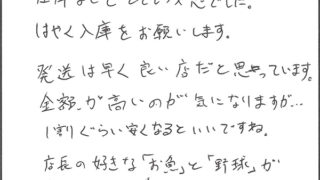 はやく入庫をお願いします。
発送は早く良い店だと思っています。
金額が高いのが気になりますが…
1割ぐらい安くなるといいですね。
店長の好きな「お魚」と「野球」が